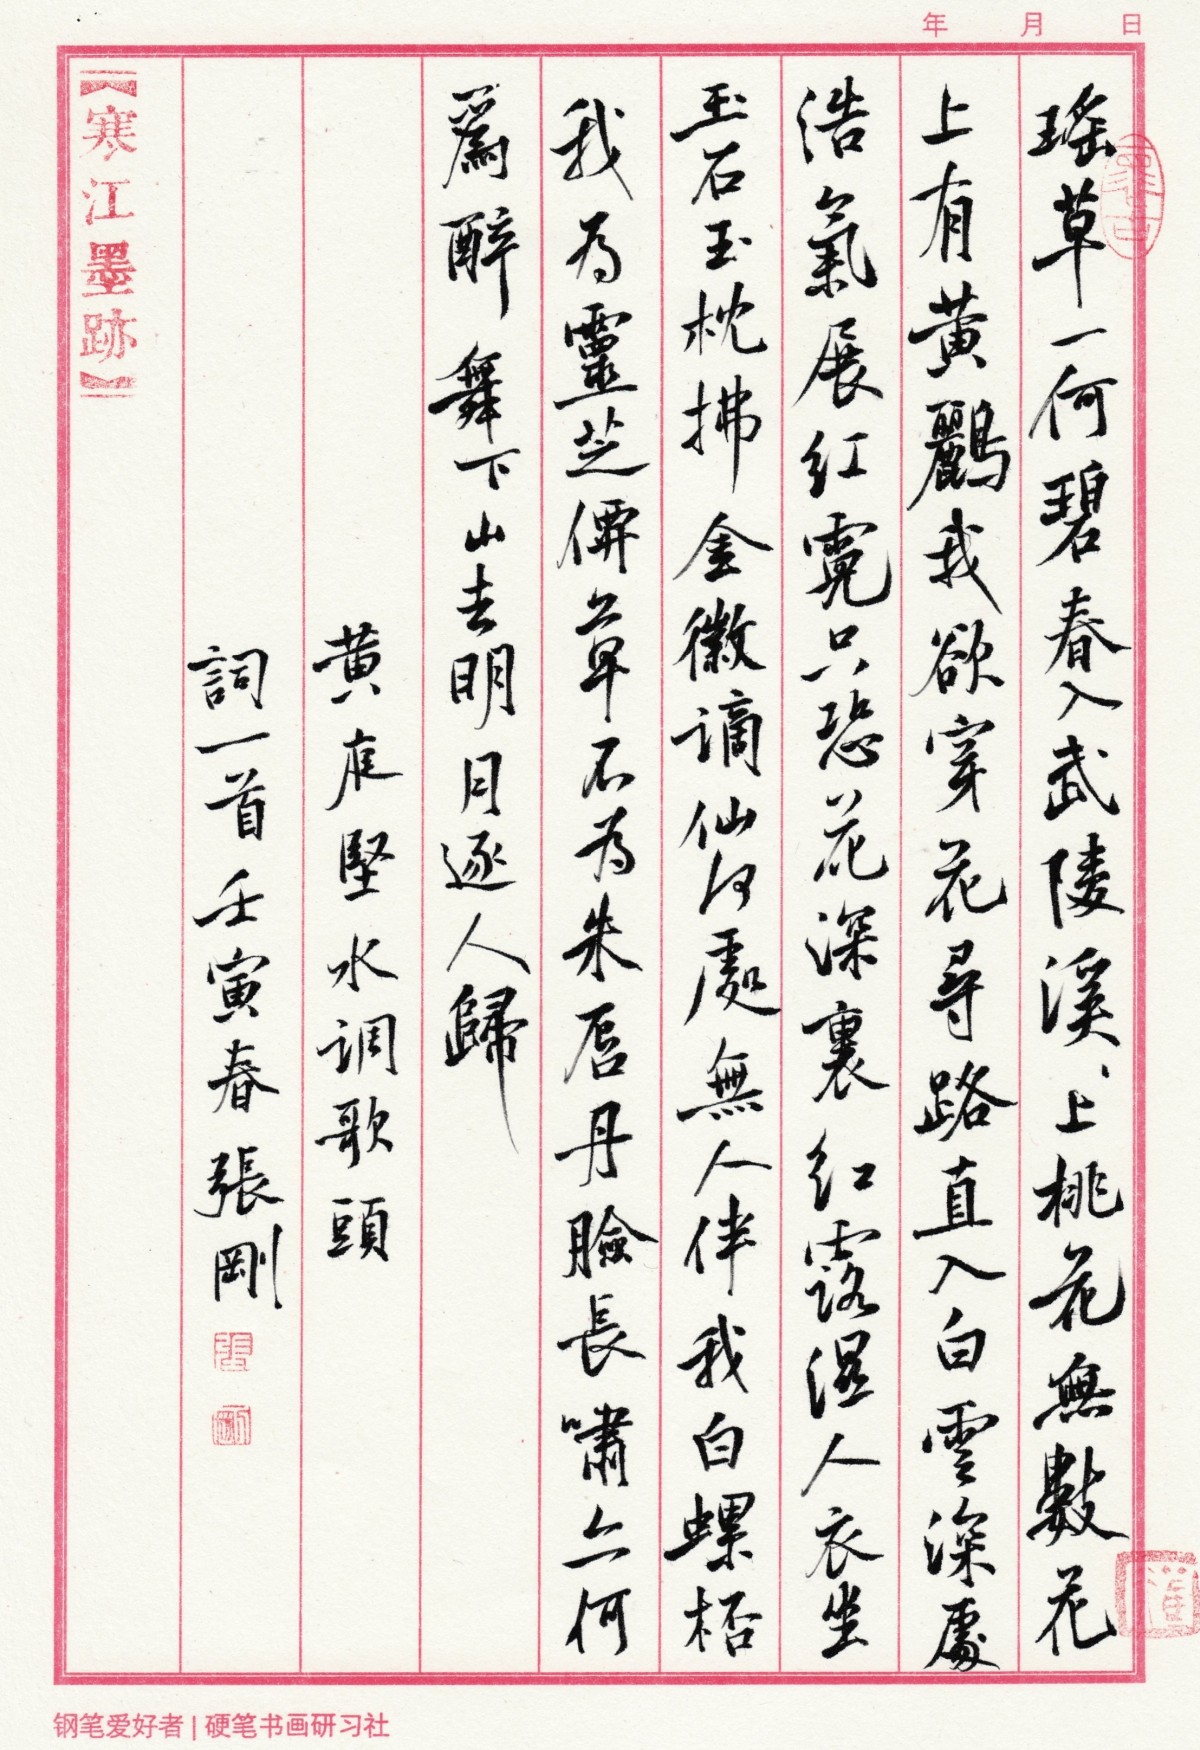 年 月 日
瑶草一何碧春入武陵溪、上桃花無數花
上有黄鸝我欲穿花尋路直入白雲深處
浩氣展紅霓只恐花深裏紅露濕人衣坐
玉石玉枕拂金徽謫仙何處無人伴我白螺杯
我為靈芝僊草不為朱唇丹臉長嘯亦何
爲醉舞下山去明月逐人歸
黄庭堅水调歌頭
詞一首壬寅春張剛
【寒江墨跡】
钢笔爱好者 | 硬笔书画研习社